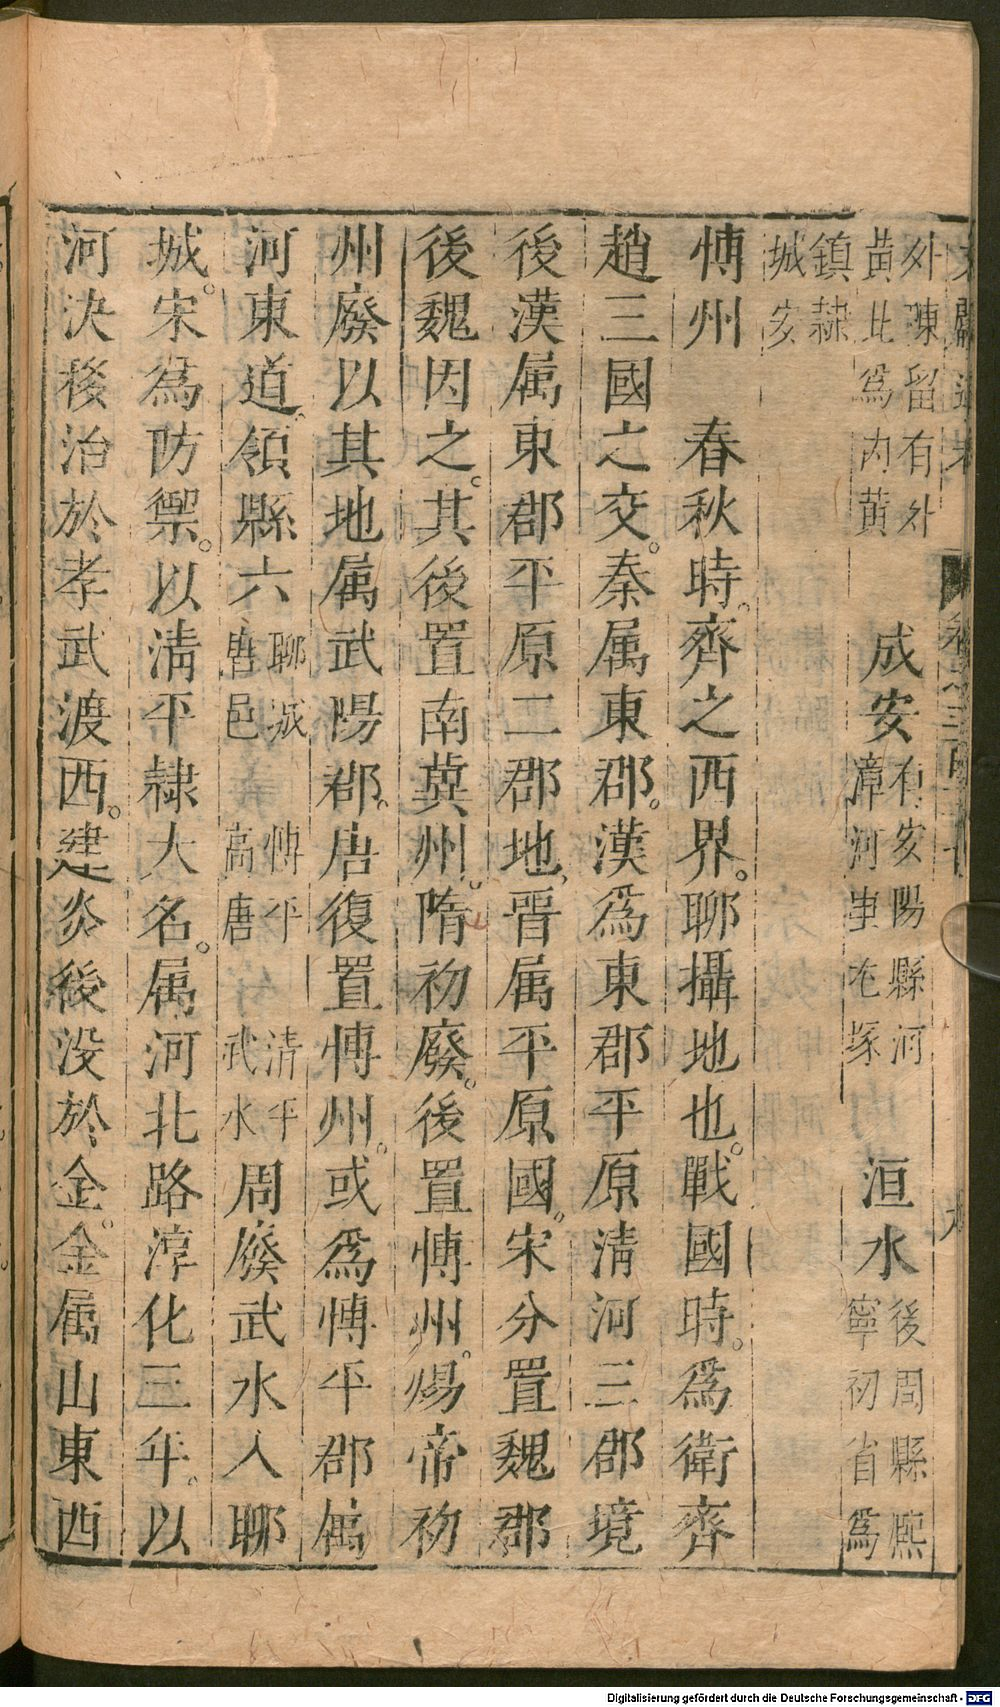 外陳留有外
黃此爲内黄
成安
有安陽縣河
漳河史冢
洹水
後周縣熙
寧初省爲
鎮隷
城安
愽州　春秋時齊之西界聊攝地也戰國時爲衛齊
趙三國之交秦属東郡漢爲東郡平原清河三郡境
後漢属東郡平原二郡地晋属平原國宋分置魏郡
後魏因之其後置南兾州隋初廢後置愽州煬帝初
州廢以其地属武陽郡唐復置愽州或爲愽平郡属
河東道領縣六
聊城
唐邑
愽平
高唐
清平
武水
周廢武水入聊
城宋爲防禦以清平隷大名属河北路淳化三年以
河決移治於孝武渡西建炎後没於金金属山東西
Digitalisierung gefördert durch die Deutsche Forschungsgemeinschaft - DFG